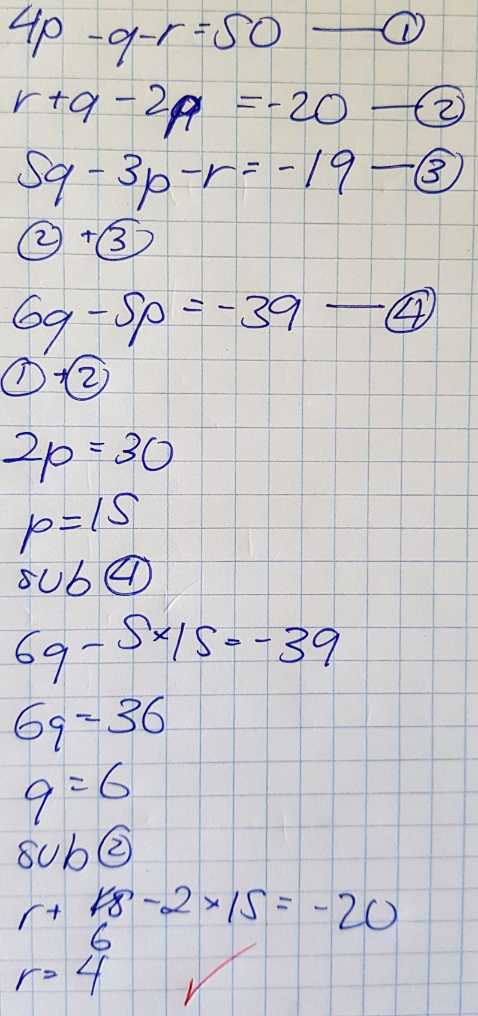 4p - q - r = 50 —— ①
r + q - 2p = -20 — ②
5q - 3p - r = -19 — ③
② + ③
6q - 5p = -39 — ④
① + ②
2p = 30
p = 15
sub ④
6q - 5×15 = -39
6q = 36
q = 6
sub ②
r + 6 - 2×15 = -20
r = 4 ✓